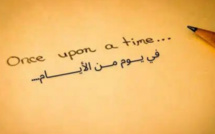 Once upon a time...
في يوم من الأيام...